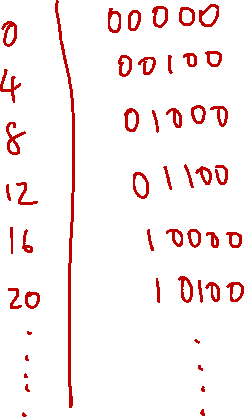 0 00000
4 00100
8 01000
12 01100
16 10000
20 10100